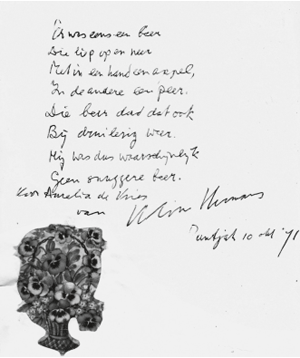 Er was eens een beer
Die liep op en neer
Met in een hand een appel,
In de andere een peer.
Die beer dad dat ook
Bij druilerig weer.
Hij was dus waarschijnlijk
Geen snuggere beer.
Voor Aurelia de Vries
van
10 okt '71